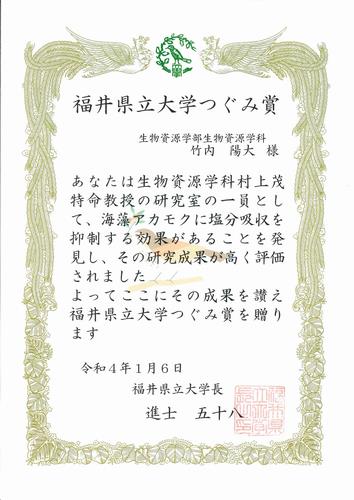 福井県立大学つぐみ賞
生物資源学部生物資源学科
竹内 陽大 様
あなたは生物資源学科村上茂
特命教授の研究室の一員とし
て、海藻アカモクに塩分吸収を
抑制する効果があることを発
見し、その研究成果が高く評価
されました
よってここにその成果を讃え
福井県立大学つぐみ賞を贈り
ます
令和４年１月６日
福井県立大学長
進士 五十八